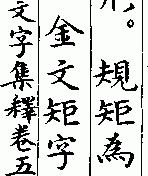 。規矩為
金文矩字
文字集釋卷五